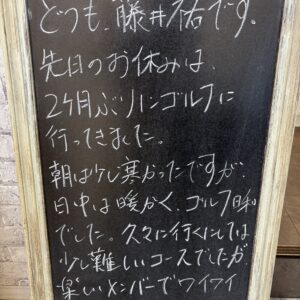 どうも、藤井祐です。
先日のお休みは、
2ケ月ぶりにゴルフに
行ってきました。
朝は少し寒かったですが、
日中は暖かく、ゴルフ日和
でした。久々に行くにしては
少し難しいコースでしたが、
楽しいメンバーでワイワイ